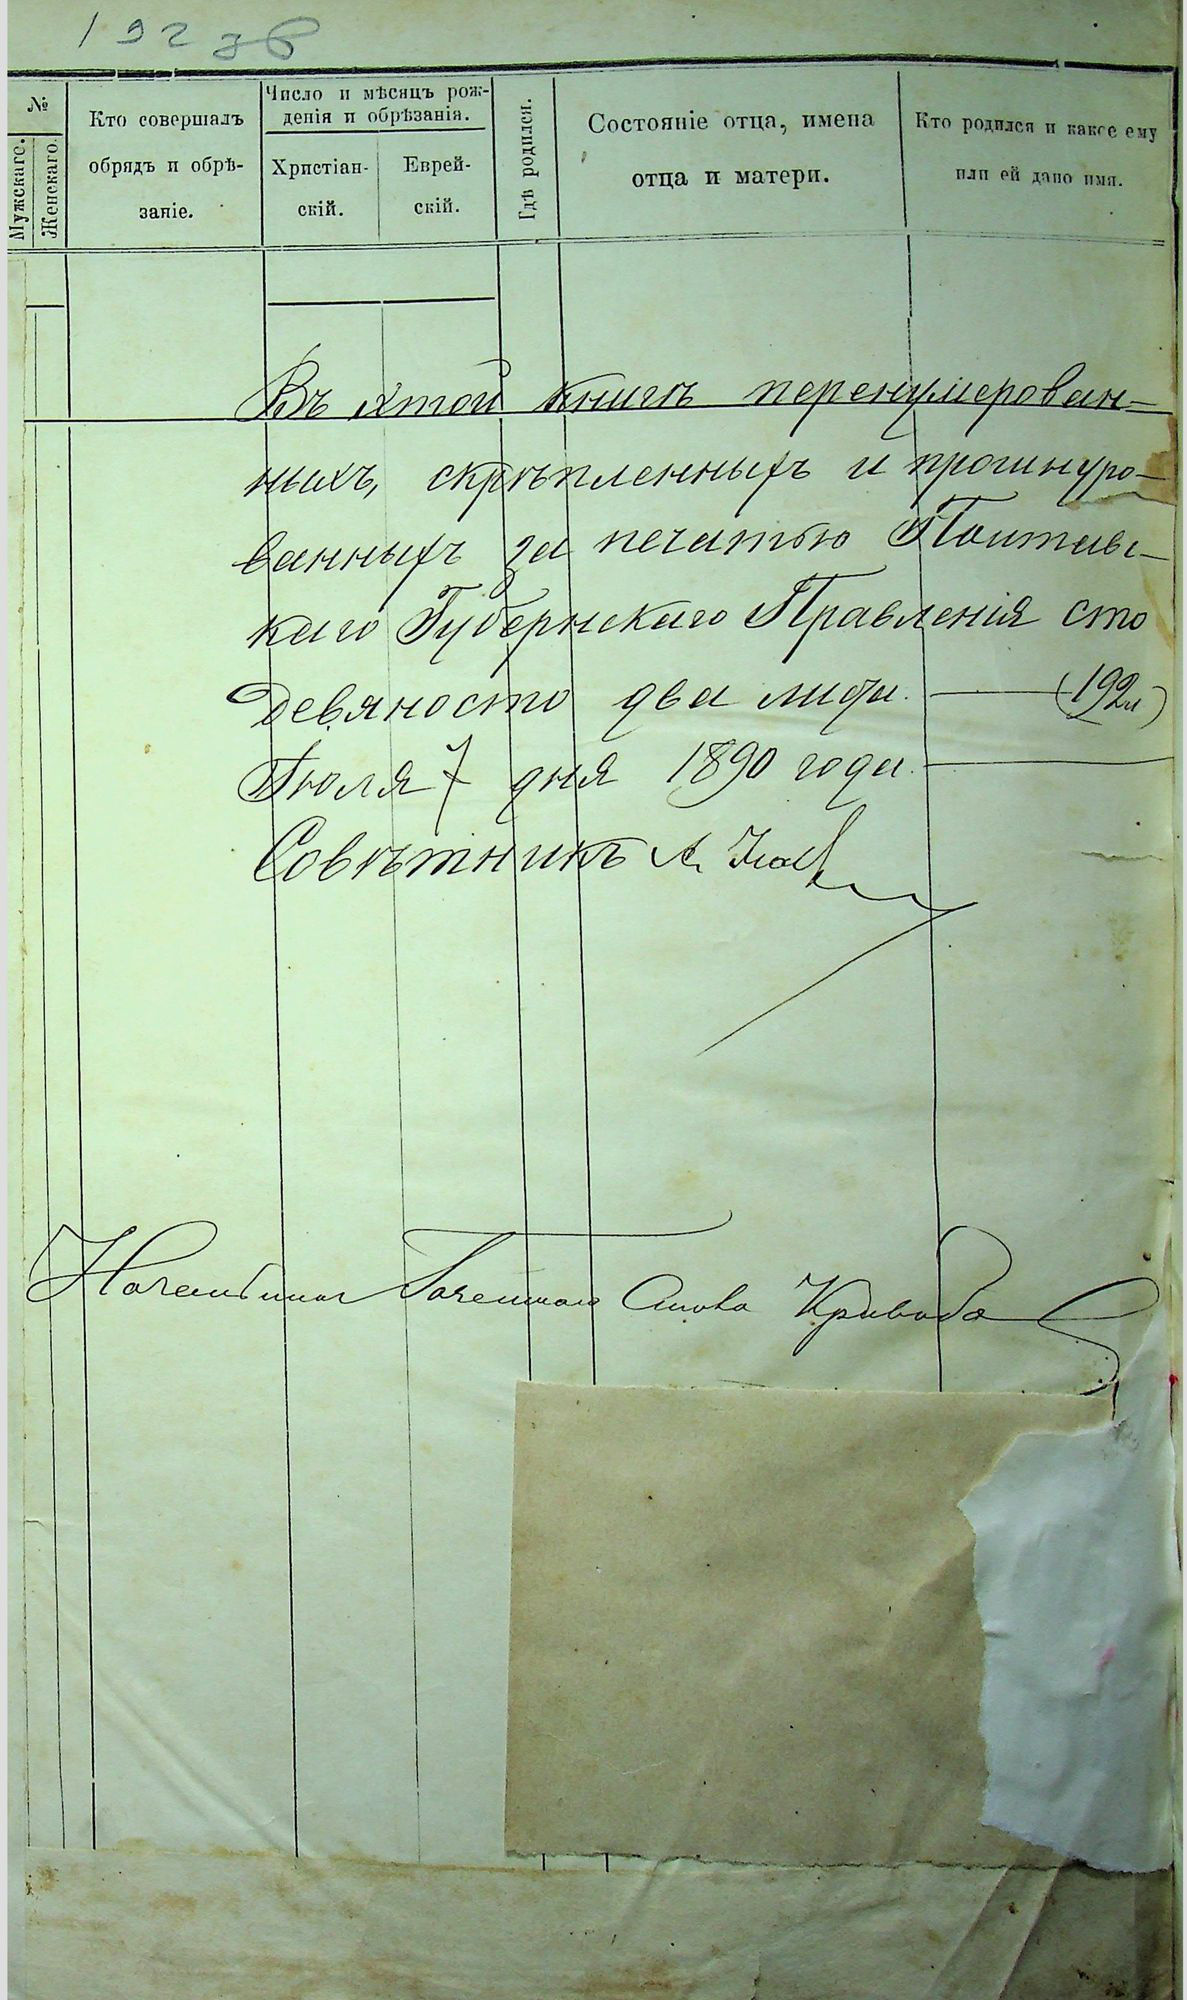 192 зв
№
Мужскаго.
Женскаго.
Кто совершалъ
обрядъ и обрѣ-
заніе.
Число и мѣсяцъ рож-
денія и обрѣзанія.
Христіан-
скій.
Еврей-
скій.
Гдѣ родился.
Состояніе отца, имена
отца и матери.
Кто родился и какое ему
или ей дано имя.
Въ этой книгѣ перенумерован-
ныхъ, скрѣпленныхъ и прошнуро-
ванныхъ за печатью Полтавс-
каго Губернскаго Правленія сто
девяносто два листа. (192л)
Іюля 7 дня 1890 года.
Совѣтникъ А.